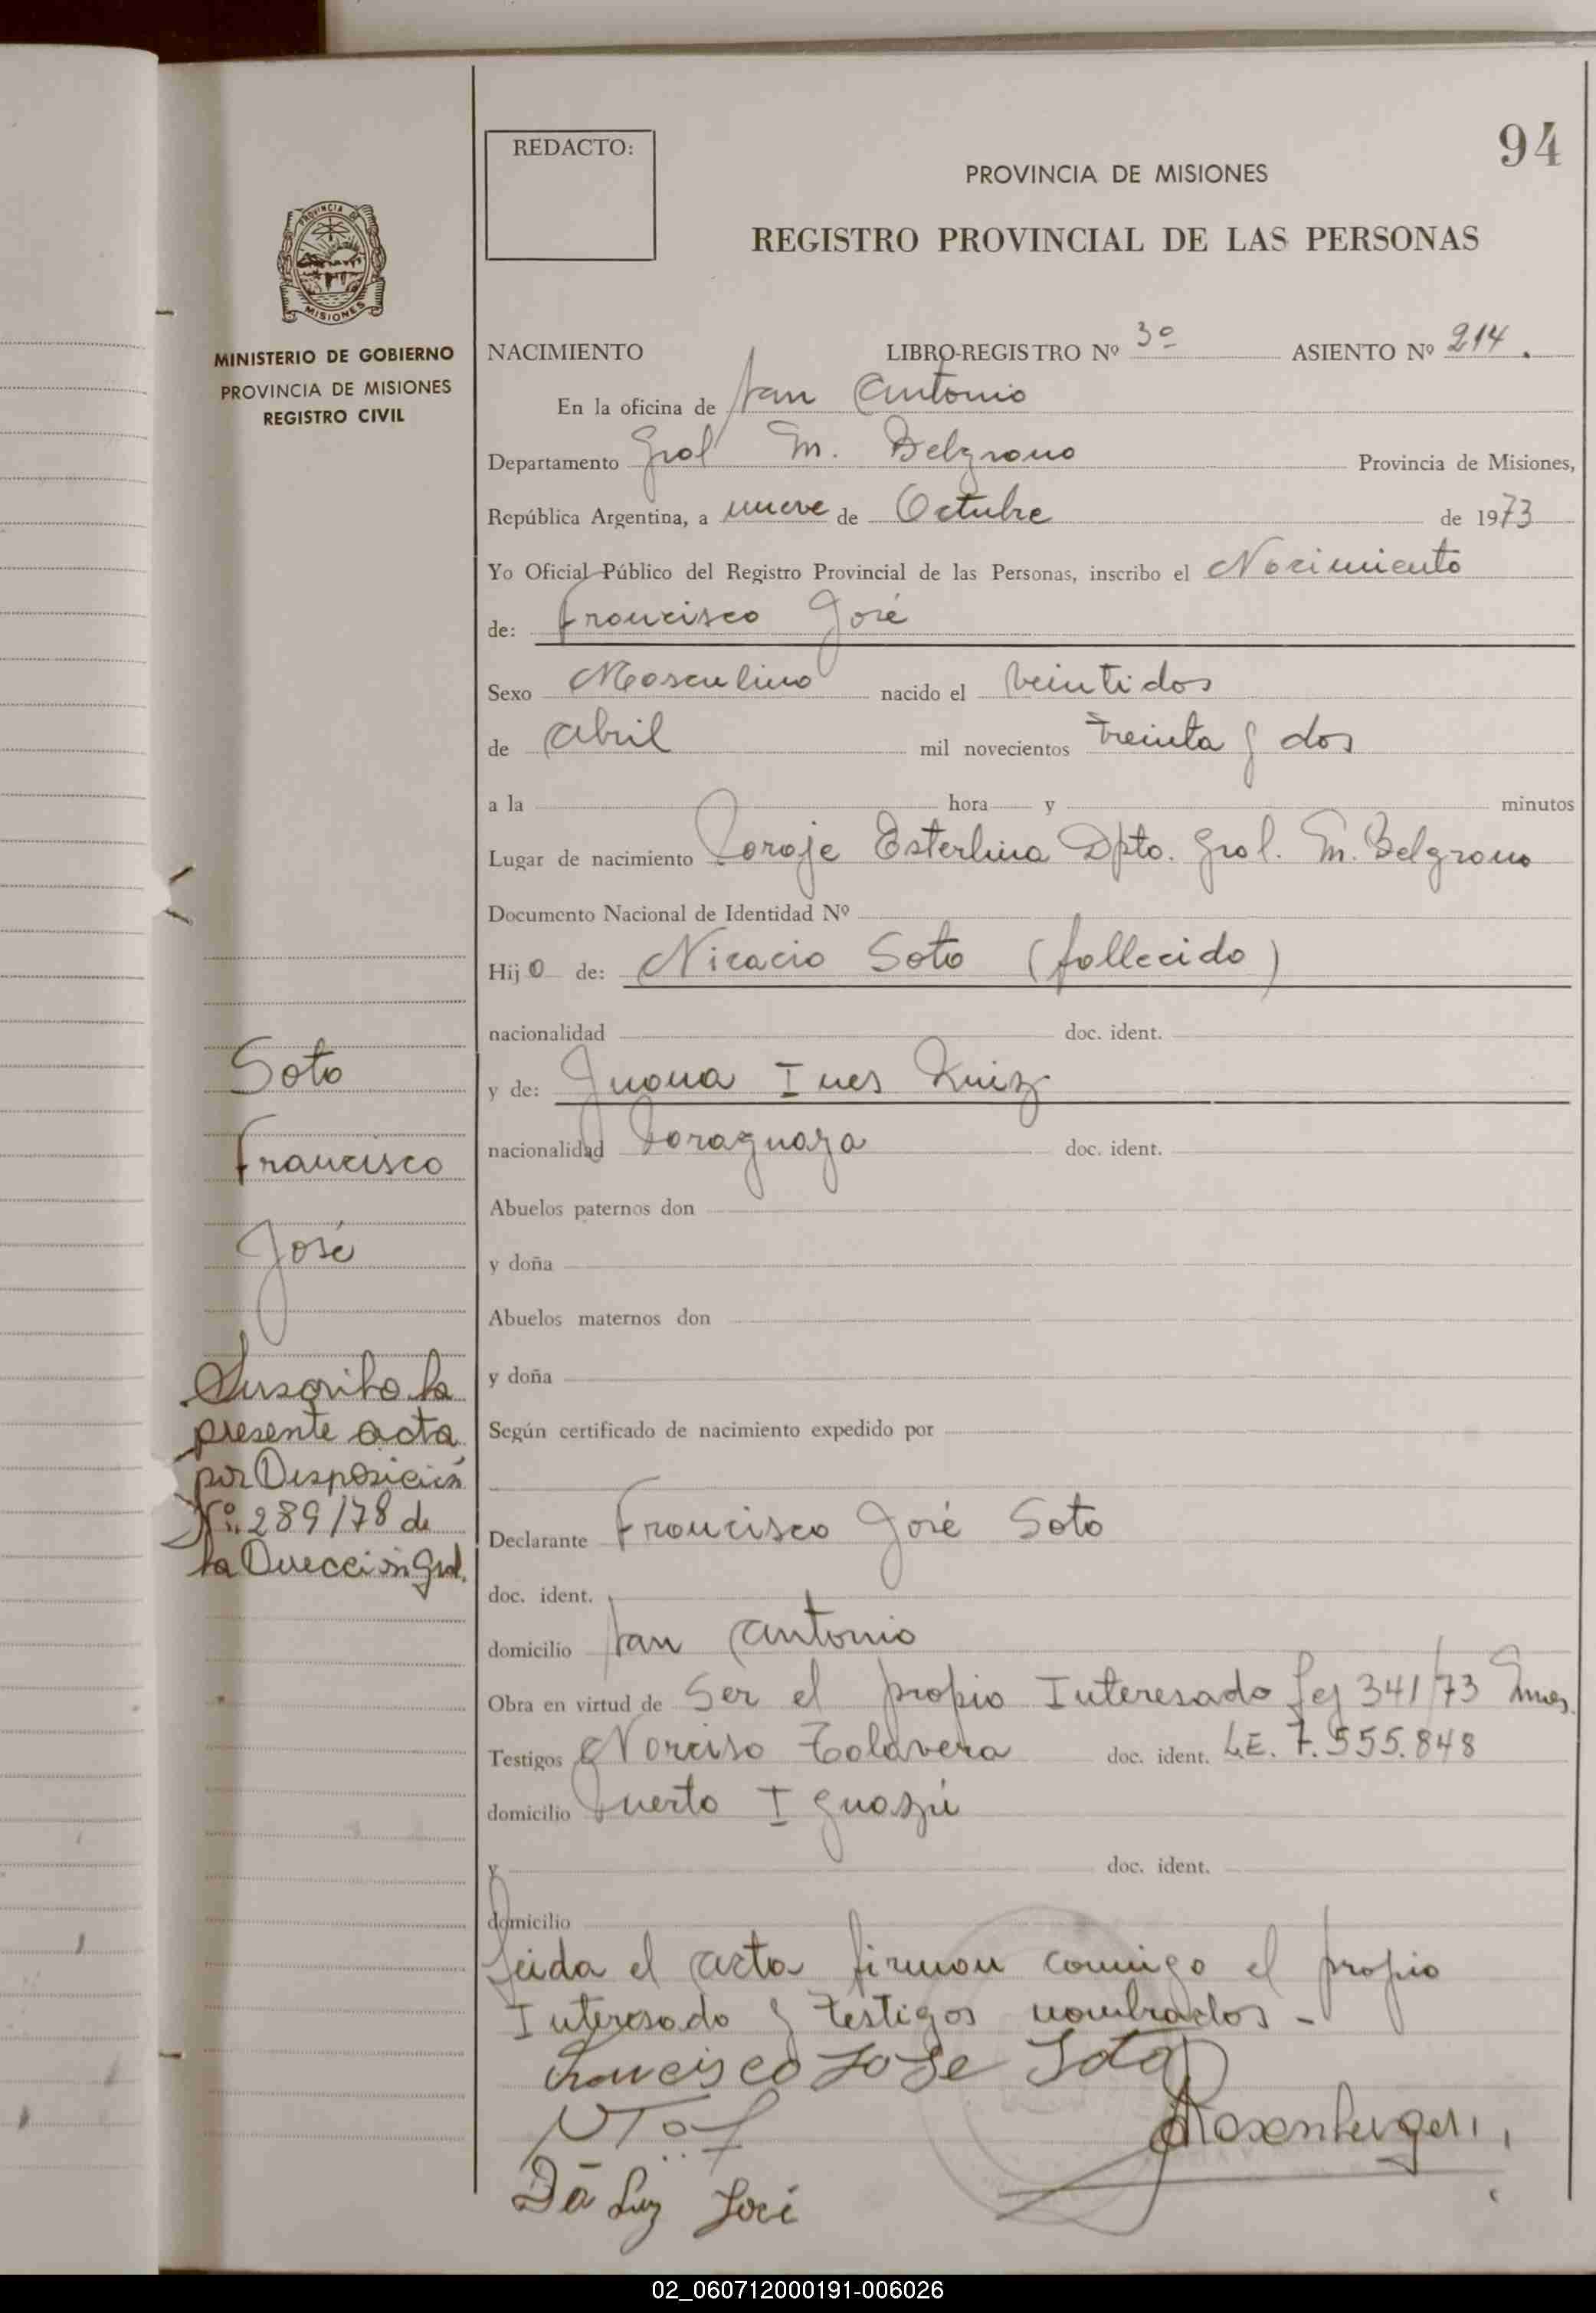 94
REDACTO:
PROVINCIA DE MISIONES
REGISTRO PROVINCIAL DE LAS PERSONAS
PROVINCIA DE
MISIONES
MINISTERIO DE GOBIERNO
PROVINCIA DE MISIONES
REGISTRO CIVIL
NACIMIENTO LIBRO-REGISTRO Nº 3º ASIENTO Nº 214.
En la oficina de San Antonio
Departamento Gral M. Belgrano Provincia de Misiones,
República Argentina, a nueve de Octubre de 1973
Yo Oficial Público del Registro Provincial de las Personas, inscribo el Nacimiento
de: Francisco José
Sexo Masculino nacido el veintidos
de Abril mil novecientos treinta y dos
a la hora y minutos
Lugar de nacimiento Paraje Esterlina Dpto. Gral. M. Belgrano
Documento Nacional de Identidad Nº
Hijo de: Nicacio Soto (fallecido)
nacionalidad doc. ident.
y de: Juana Ines Ruiz
nacionalidad Paraguaya doc. ident.
Abuelos paternos don
y doña
Abuelos maternos don
y doña
Según certificado de nacimiento expedido por
Declarante Francisco José Soto
doc. ident.
domicilio San Antonio
Obra en virtud de Ser el propio Interesado Ley 341/73
Testigos Narciso Talavera doc. ident. L.E. 7.555.848
domicilio Puerto Iguazú
y doc. ident.
domicilio
Leida el acta firman conmigo el propio
Interesado y testigos nombrados -
Francisco José Soto
Da Luz José
Soto
Francisco
José
Suscribo la
presente acta
por Disposición
Nº 289/78 de
la Dirección Gral.
02_060712000191-006026